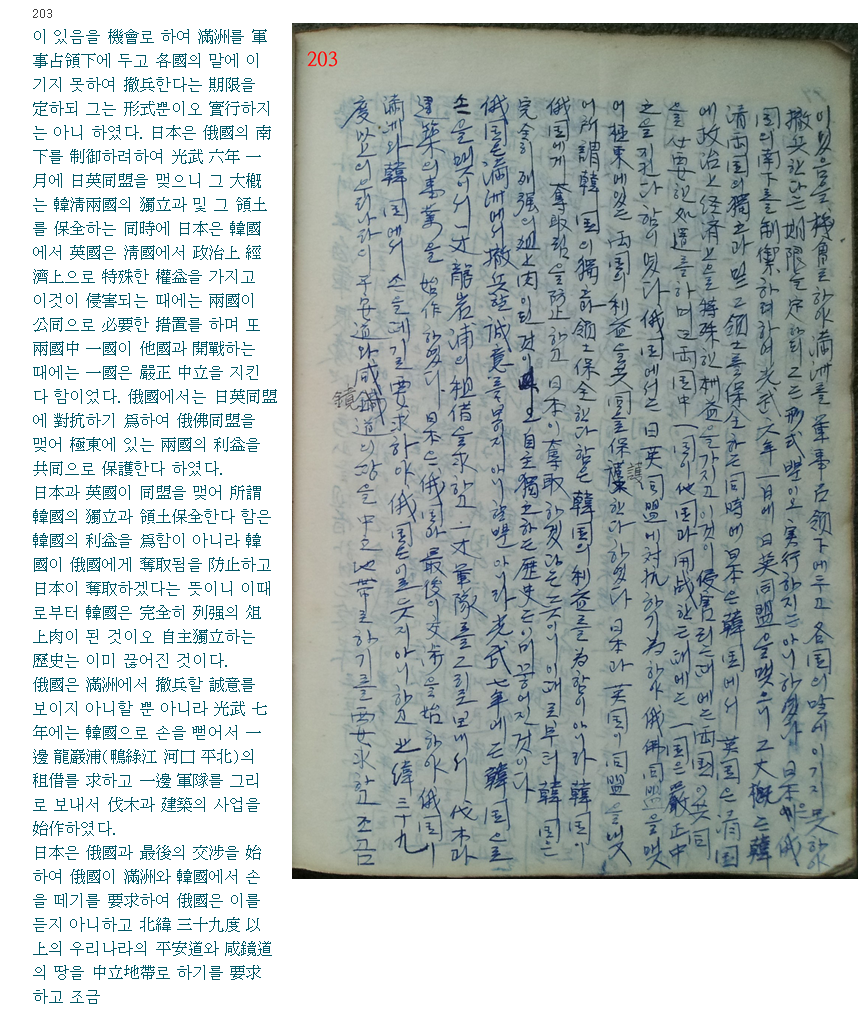 203
이 있음을 機會로 하여 滿洲를 軍
事占領下에 두고 各國의 말에 이
기지 못하여 撤兵한다는 期限을
定하되 그는 形式뿐이오 實行하지
는 아니 하였다. 日本은 俄國의 南
下를 制御하려하여 光武 六年 一
月에 日英同盟을 맺으니 그 大槪
는 韓淸兩國의 獨立과 및 그 領土
를 保全하는 同時에 日本은 韓國
에서 英國은 淸國에서 政治上 經
濟上으로 特殊한 權益을 가지고
이것이 侵害되는 때에는 兩國이
公同으로 必要한 措置를 하며 또
兩國中 一國이 他國과 開戰하는
때에는 一國은 嚴正 中立을 지킨
다 함이었다. 俄國에서는 日英同盟
에 對抗하기 爲하여 俄佛同盟을
맺어 極東에 있는 兩國의 利益을
共同으로 保護한다 하였다.
日本과 英國이 同盟을 맺어 所謂
韓國의 獨立과 領土保全한다 함은
韓國의 利益을 爲함이 아니라 韓
國이 俄國에게 奪取됨을 防止하고
日本이 奪取하겠다는 뜻이니 이때
로부터 韓國은 完全히 列强의 俎
上肉이 된 것이오 自主獨立하는
歷史는 이미 끊어진 것이다.
俄國은 滿洲에서 撤兵할 誠意를
보이지 아니할 뿐 아니라 光武 七
年에는 韓國으로 손을 뻗어서 一
邊 龍巖浦(鴨綠江 河口 平北)의
租借를 求하고 一邊 軍隊를 그리
로 보내서 伐木과 建築의 사업을
始作하였다.
日本은 俄國과 最後의 交涉을 始
하여 俄國이 滿洲와 韓國에서 손
을 떼기를 要求하여 俄國은 이를
듣지 아니하고 北緯 三十九度 以
上의 우리나라의 平安道와 咸鏡道
의 땅을 中立地帶로 하기를 要求
하고 조금
203
이 있음을 機會로 하야 滿洲를 軍事占領下에 두고 各国의 말에 이기지 못하야
撤兵한다는 期限을 定하되 그는 形式뿐이오 実行하지는 아니하였다 日本은 俄
国의 南下를 制禦하려하여 光武六年 一月에 日英同盟을 맺으니 그 大概는 韓
清両国의 獨立과 및 그 領土를 保全하는 同時에 日本은 韓国에서 英国은 清国
에 政治上 経済上으로 特殊한 権益을 가지고 이것이 侵害되는 때에는 両国이 共同
으로 必要한 処置를 하며 또 両国中 一国이 他国과 開戦한는 때에는 一国은 嚴正中
立을 지킨다 함이였다 俄国에서는 日英同盟에 対抗하기 為하야 俄佛同盟을 맺
어 極東에 있는 両国의 利益을 共同으로 保護한다 하였다 日本과 英国이 同盟을 맺
어 所謂 韓国의 獨立과 領土保全한다 함은 韓国의 利益를 為함이 아니라 韓国이
俄国에게 奪取됨을 防止하고 日本이 奪取하겠다는 뜻이니 이때로부터 韓国은
完全히 列强의 俎上肉이 된 것이오 自主獨立하는 歷史는 이미 끊어진 것이다
俄国은 満洲에서 撤兵할 誠意를 보이지 아니할뿐 아니라 光武七年에는 韓国으로
손을 뻗어서 一才 龍岩浦의 租借를 求하고 一才 軍隊를 그리로 보내서 伐木과
建築의 事業을 始作하였다 日本은 俄国과 最後의 交涉을 始하야 俄国이
満洲와 韓国에서 손을 떼기를 要求하야 俄国은 이를 듣지 아니하고 北緯 三十九
度以上의 우리나라의 平安道와 咸鏡道의 땅을 中立地帶로 하기를 要求하고 조금